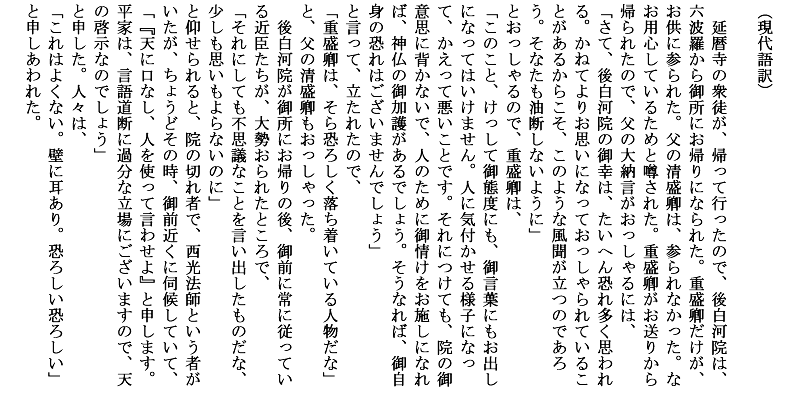 （現代語訳）
　延暦寺の衆徒が、帰って行ったので、後白河院は、
六波羅から御所にお帰りになられた。重盛卿だけが、
お供に参られた。父の清盛卿は、参られなかった。な
お用心しているためと噂された。重盛卿がお送りから
帰られたので、父の大納言がおっしゃるには、
「さて、後白河院の御幸は、たいへん恐れ多く思われ
る。かねてよりお思いになっておっしゃられているこ
とがあるからこそ、このような風聞が立つのであろ
う。そなたも油断しないように」
とおっしゃるので、重盛卿は、
「このこと、けっして御態度にも、御言葉にもお出し
になってはいけません。人に気付かせる様子になっ
て、かえって悪いことです。それにつけても、院の御
意思に背かないで、人のために御情けをお施しになれ
ば、神仏の御加護があるでしょう。そうなれば、御自
身の恐れはございませんでしょう」
と言って、立たれたので、
「重盛卿は、そら恐ろしく落ち着いている人物だな」
と、父の清盛卿もおっしゃった。
　後白河院が御所にお帰りの後、御前に常に従ってい
る近臣たちが、大勢おられたところで、
「それにしても不思議なことを言い出したものだな、
少しも思いもよらないのに」
と仰せられると、院の切れ者で、西光法師という者が
いたが、ちょうどその時、御前近くに伺候していて、
「『天に口なし、人を使って言わせよ』と申します。
平家は、言語道断に過分な立場にございますので、天
の啓示なのでしょう」
と申した。人々は、
「これはよくない。壁に耳あり。恐ろしい恐ろしい」
と申しあわれた。